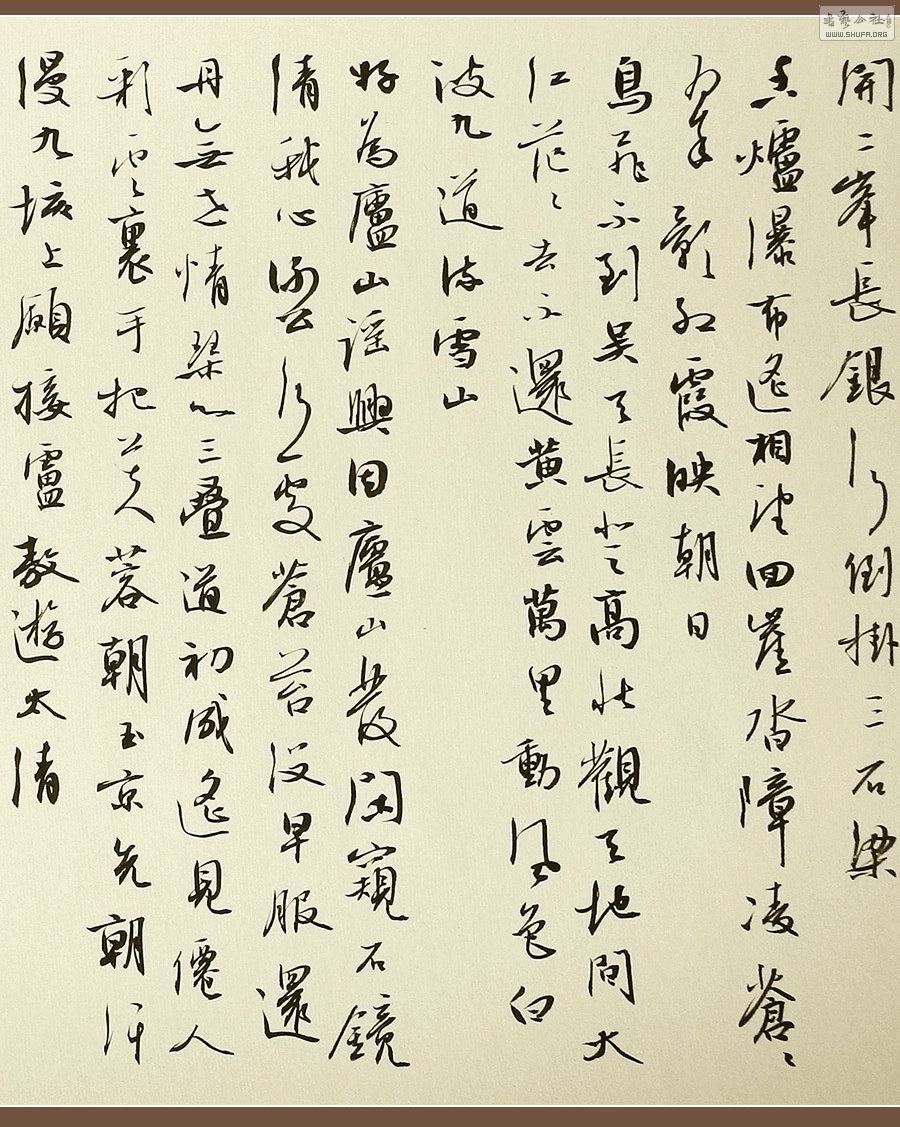 開二峯長銀河倒掛三石梁
香爐瀑布遙相望回崖沓障凌蒼〻
翠影紅霞映朝日
鳥飛不到吳天長登高壯觀天地間大
江茫〻去不還黃雲萬里動風色白
波九道流雪山
好為廬山謠興因廬山發閑窺石鏡
清我心謝公行處蒼苔沒早服還
丹無世情琴心三疊道初成遙見僊人
彩雲裏手把芙蓉朝玉京先朝汗
漫九垓上願接盧敖遊太清
書藝公社
WWW.SHUFA.ORG